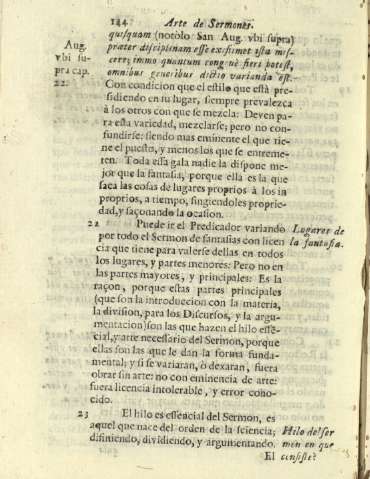 144 Arte de Sermones.
quisquam (notòlo San Aug. vbi supra)
præter disciplinam esse existimet ista mis-
cere; immo quantum congruè fieri potest,
omnibus generibus dictio varianda est.
Aug.
vbi su-
pra cap.
22.
Con condicion que el estilo que està pre-
sidiendo en su lugar, siempre prevalezca
à los otros con que se mezcla: Deven pa-
ra esta variedad, mezclarse; pero no con-
fundirse: siendo mas eminente el que tie-
ne el puesto, y menos los que se entreme-
ten. Toda esta gala nadie la dispone me-
jor que la fantasia; porque ella es la que
saca las cosas de lugares proprios à los in
proprios, a tiempo, fingiendoles proprie-
dad, y saçonando la ocasion.
22 Puede ir el Predicador variando
por todo el Sermon de fantasias con licen
cia que tiene para valerse dellas en todos
los lugares, y partes menores: Pero no en
las partes mayores, y principales: Es la
raçon, porque estas partes principales
(que son la introduccion con la materia,
la division, para los Discursos, y la argu-
mentacion) son las que hazen el hilo essē-
cial, y arte necessario del Sermon, porque
ellas son las que le dan la forma funda-
mental; y si se variaran, ò dexaran, fuera
obrar sin arte: no con eminencia de arte:
fuera licencia intolerable, y error cono-
cido.
Lugares de
la fantasia.
23 El hilo es essencial del Sermon, es
aquel que nace del orden de la sciencia;
difiniendo, dividiendo, y argumentando.
Hilo del ser
mon en que
consiste?
El